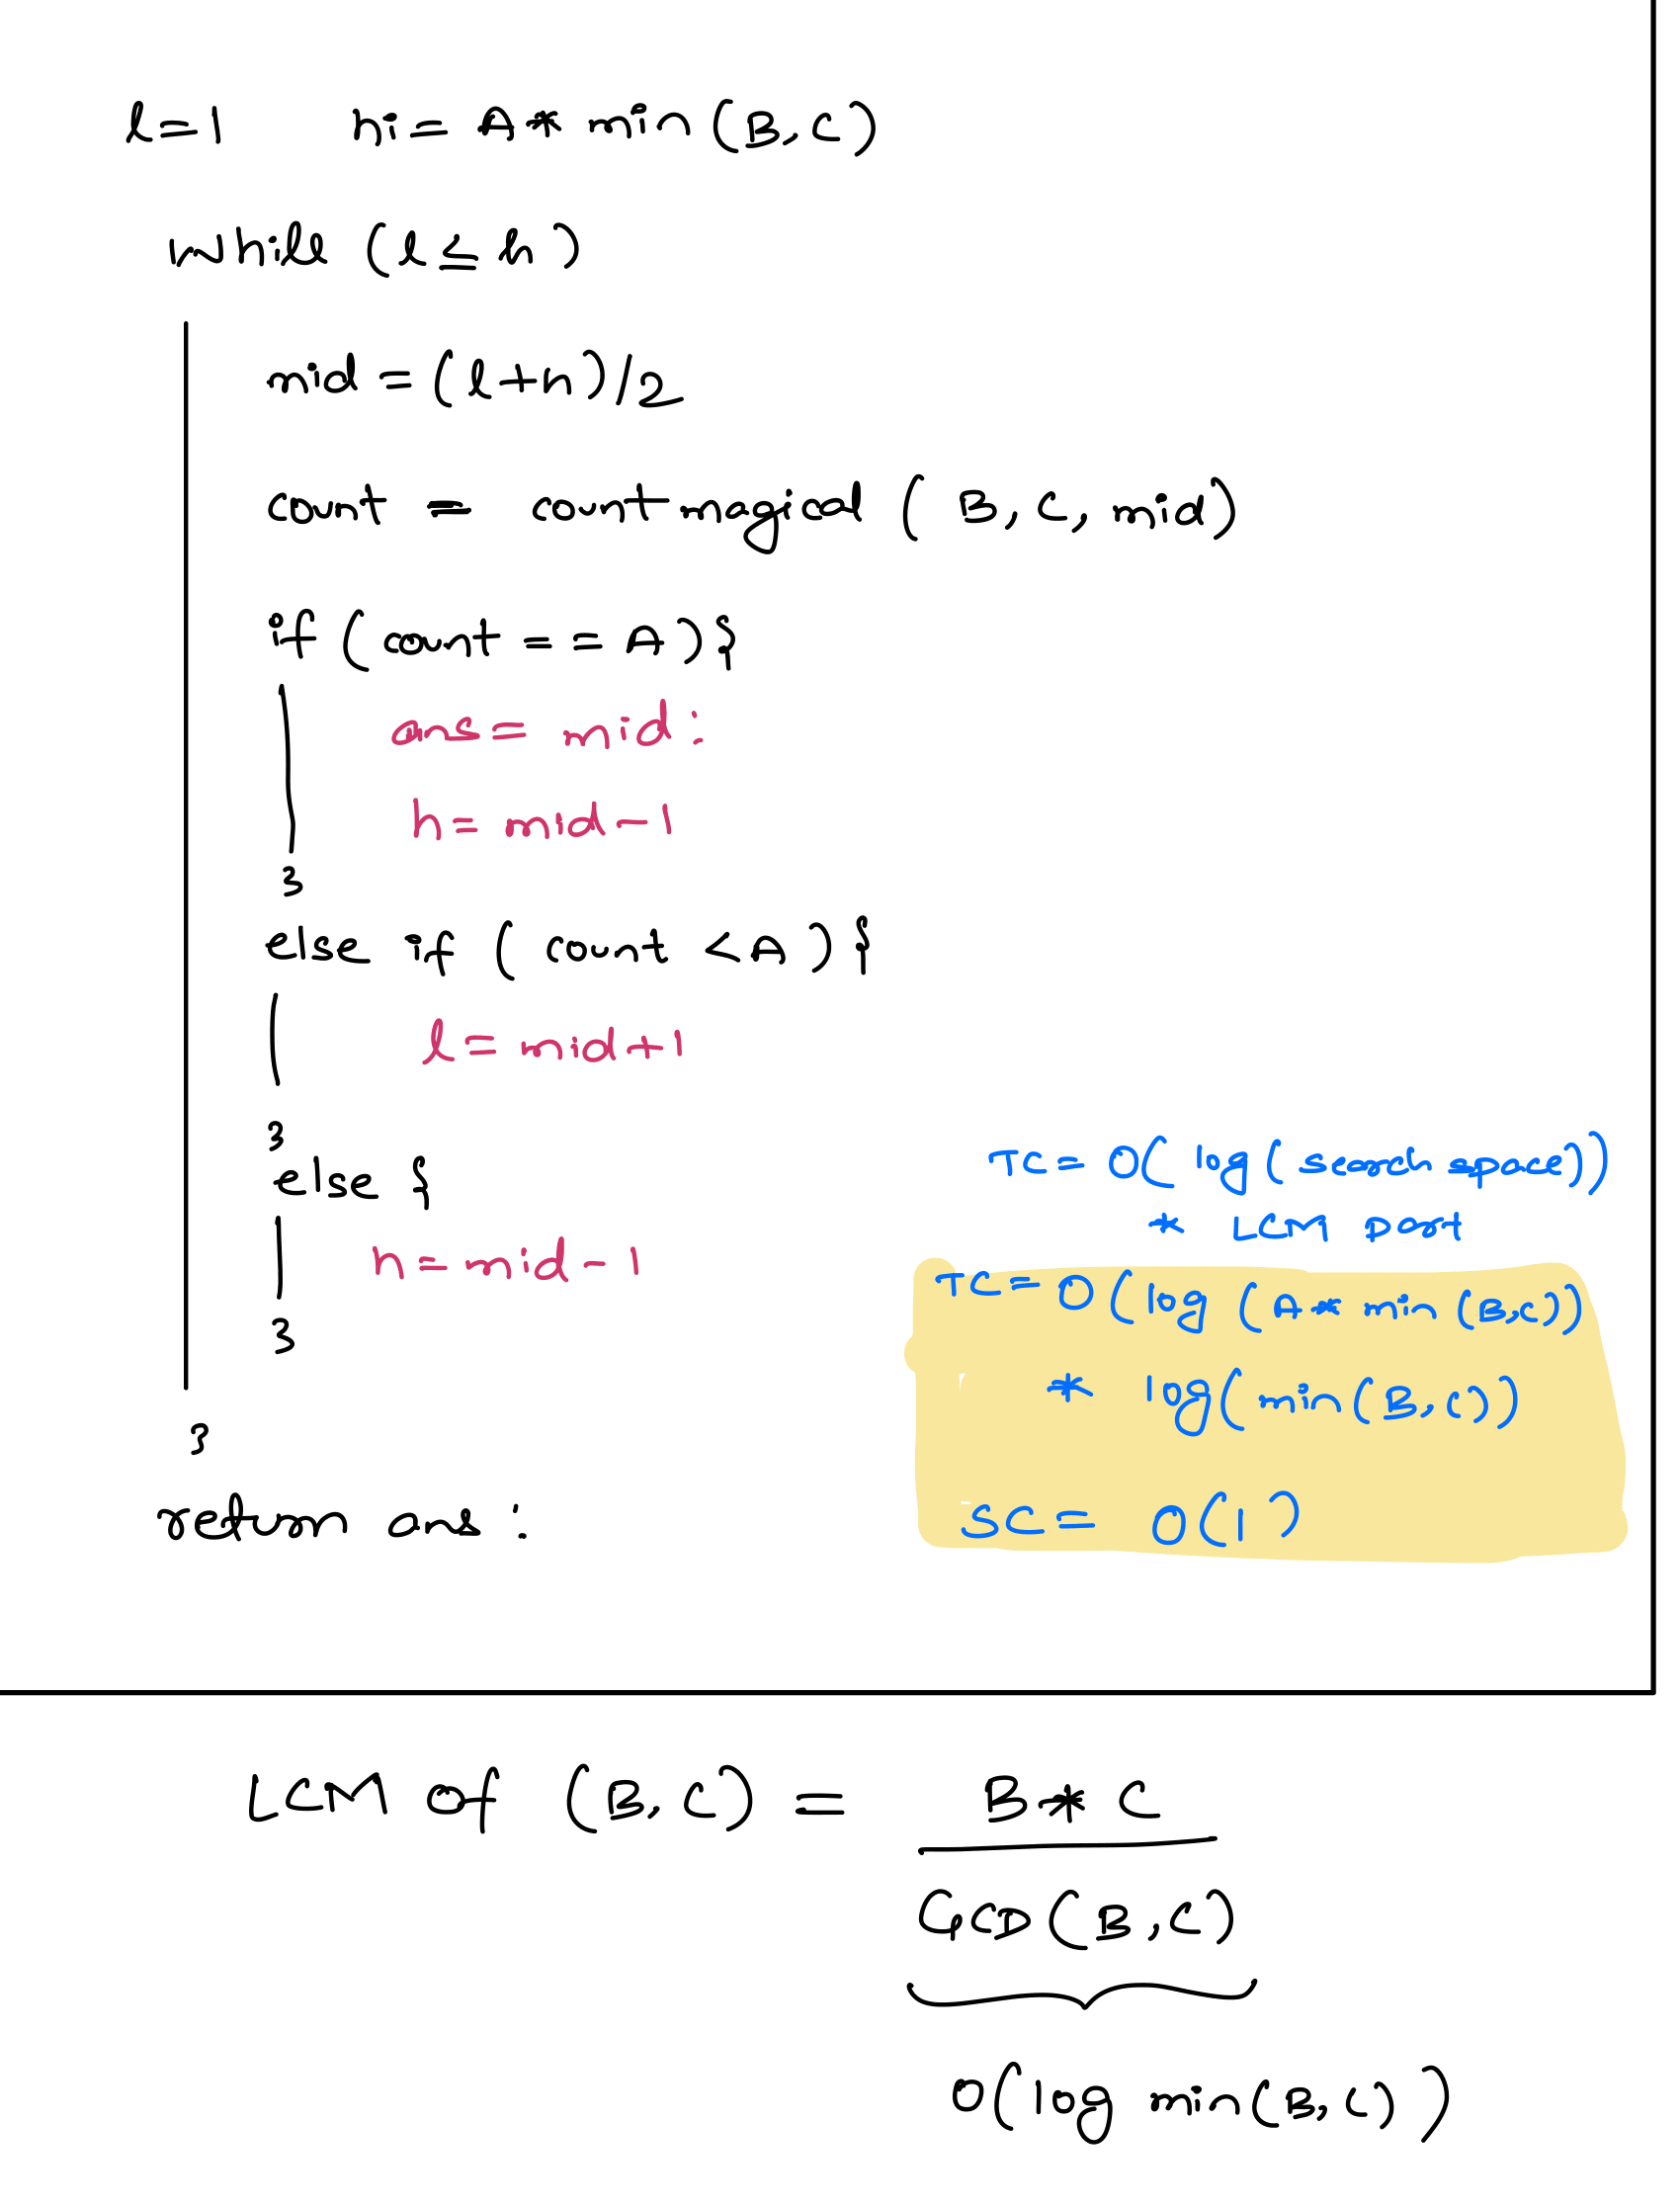 l=1 hi = A * min (B, C)
while (l ≤ h)
mid = (l+h)/2
count = countmagical ( B, C, mid)
if (count == A) {
ans = mid ;
h = mid - 1
}
else if ( count < A ) {
l = mid+1
}
else {
h = mid - 1
}
}
return ans ;
TC = O( log (search space))
* LCM part
TC = O (log (A * min (B,C))
* log( min (B, C))
SC = O(1)
LCM of (B, C) = B * C
GCD (B, C)
O(log min(B, C))